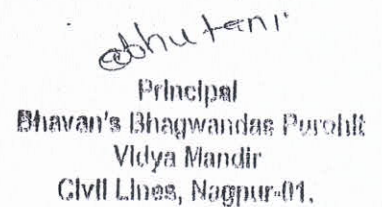 abhutani.
Principal
Bhavan's Bhagwandas Purohit
Vidya Mandir
Civil Lines, Nagpur-01.